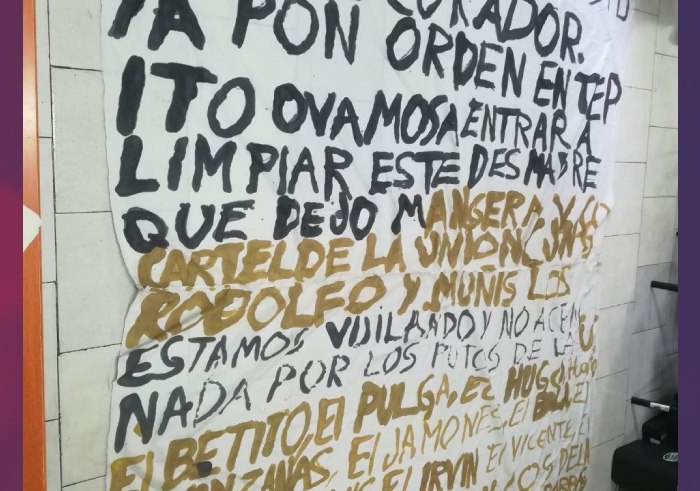 CURADOR.
YA PON ORDEN EN TEP
ITO O VAMOS A ENTRAR A
LIMPIAR ESTE DESMADRE
QUE DEJO MANGERA Y CO
CARTEL DE LA UNION CON
RODOLFO Y MUÑIS LOS
ESTAMOS VIJILANDO Y NO ACEN
NADA POR LOS PUTOS DE LA U
El BETITO, El PULGA, EL HUGO
El JAMONES, El El
El IRVIN El VICENTE, El